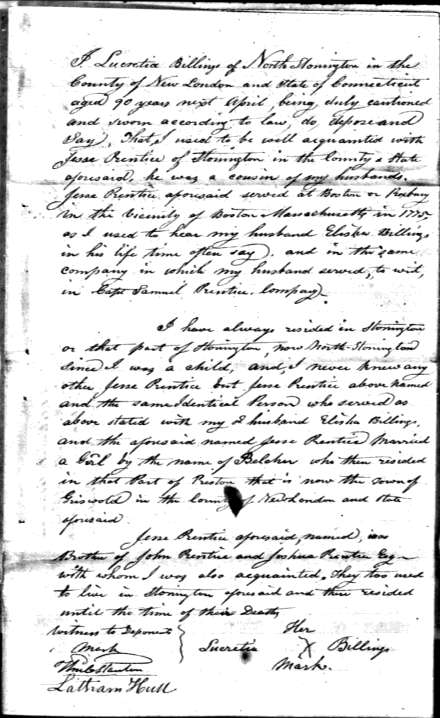 I Lucretia Billings of North Stonington in the
County of New London and State of Connecticut
aged 90 years next April, being duly cautioned
and sworn according to law, do, depose and
Say, That I used to be well acquainted with
Jesse Prentice of Stonington in the County & State
aforesaid, he was a cousin of my husbands,
Jesse Prentice aforesaid served at Boston or Roxbury
in the vicinity of Boston Massachusetts, in 1775,
as I used to hear my husband Elisha Billings
in his life time often say, and in the same
company in which my husband served, to wit,
in Capt Samuel Prentice, Compay.
I have always resided in Stonington
or that part of Stonington, now North-Stonington
Since I was a child, and I never knew any
other Jesse Prentice but Jesse Prentice above named
and the same Identical Person who served as
above stated with my husband Elisha Billings,
and the aforesaid named Jesse Prentice Married
a Girl by the name of Belcher who then resided
in that Part of Preston that is now the town of
Griswold in the County of New London and State
aforesaid
Jesse Prentice aforesaid, named, was
Brother of John Prentice and Joshua Prentice Esq
with whom I was also acquainted, They too used
to live in Stonington aforesaid and there resided
until the time of their Death,
Witness to Deponents Her
Mark Lucretia X Billings
Mark.
Latham Hull